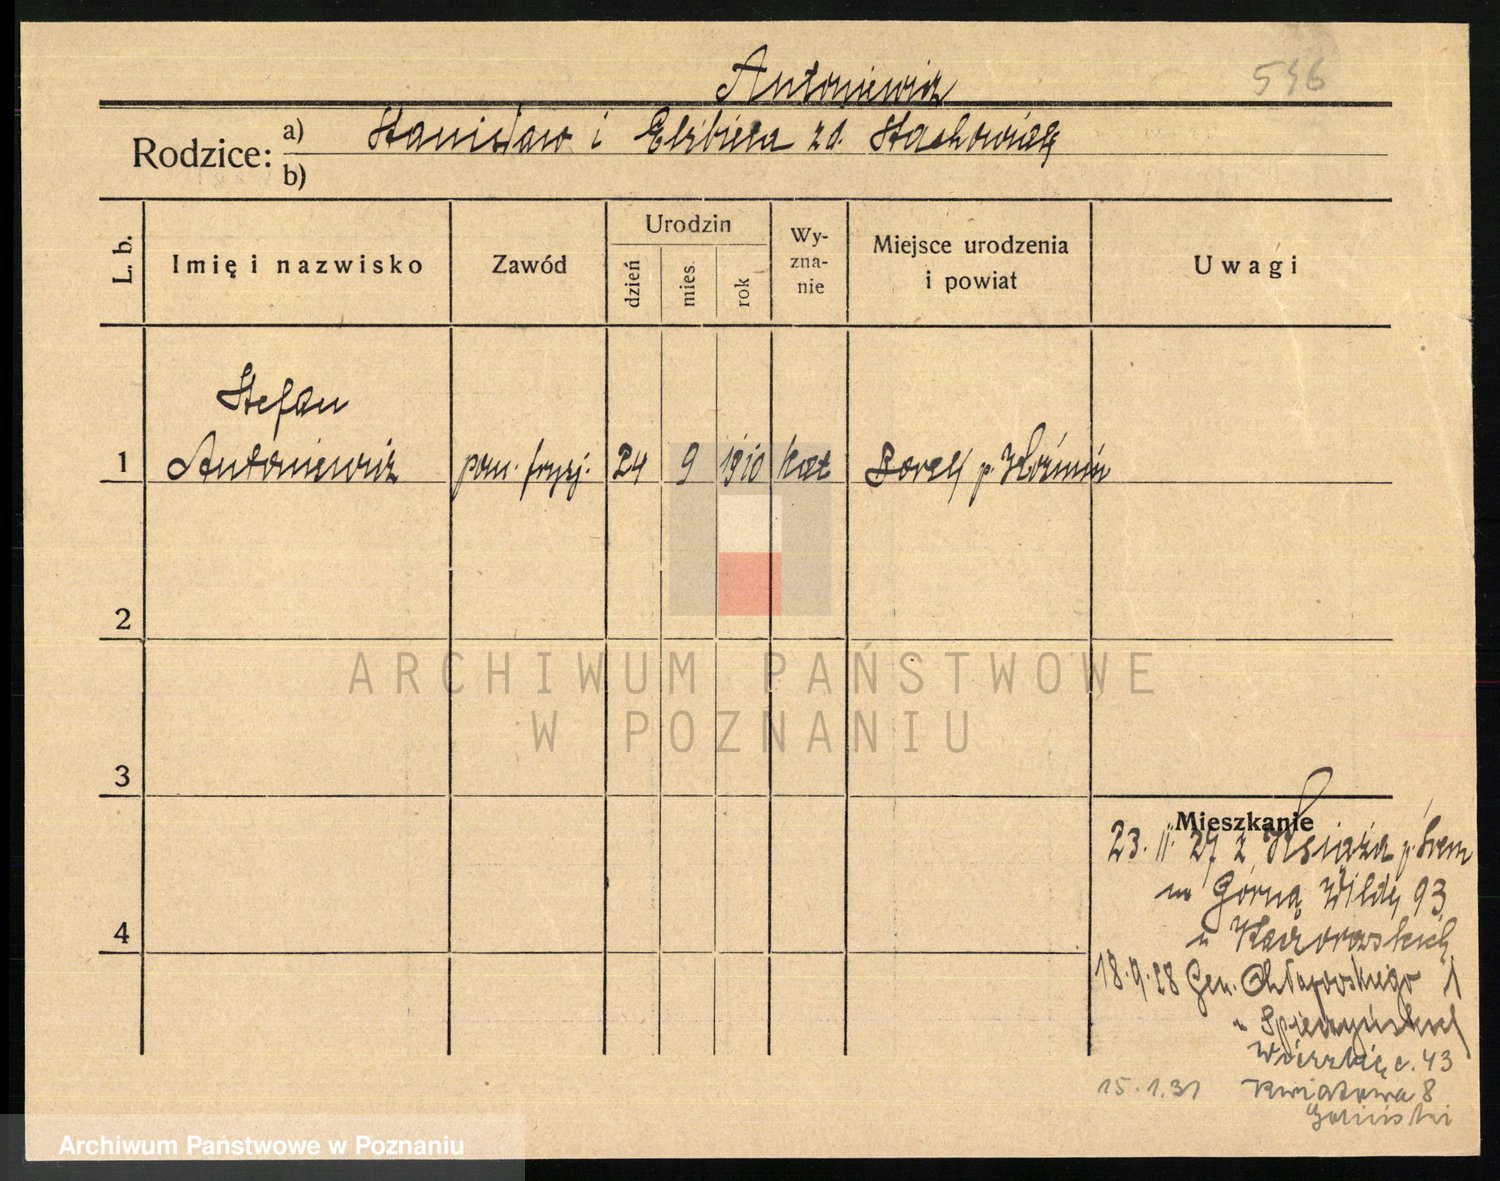 Antoniewicz
546
Rodzice:
a) Stanisław i Elżbieta zd. Stachowiak
b)
L. b.
Imię i nazwisko
Zawód
Urodzin
dzień
mies.
rok
Wy-
zna-
nie
Miejsce urodzenia
i powiat
Uwagi
Stefan
1 Antoniewicz pom. fryzj. 24 9 1910 kat Borek p.
2
3
4
ARCHIWUM PAŃSTWOWE
W POZNANIU
Mieszkanie
23. II. 27 z Książa p. Śrem
na Górną Wildę 93
u
18.9.28 Gen. Chłapowskiego 1
u
43
15.1.31 Kwiatowa 8
Archiwum Państwowe w Poznaniu